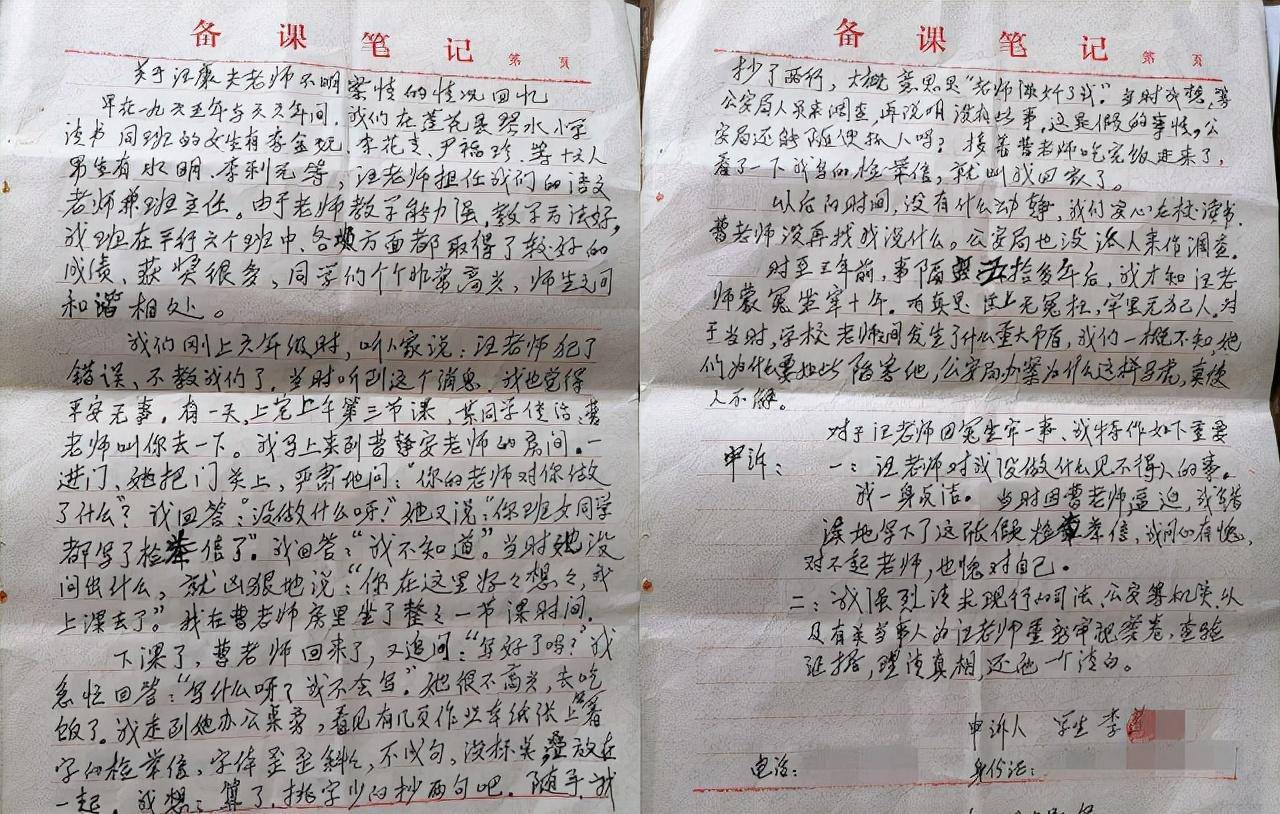 备课笔记
第 页
关于汪康夫老师不明案情的情况回忆
早在一九六五年与六六年间，我们在莲花县琴水小学
读书 同班的女生有李金 、李花 、尹福珍、等十六人
男生有 明、李利元等，汪老师担任我们的语文
老师兼班主任。由于老师教学能力强，教学方法好，
我班在平行六个班中、各项方面都取得了较好的
成绩、获奖很多，同学们个个非常高兴，师生之间
和谐相处。
我们刚上六年级时，听人家说：汪老师犯了
错误、不教我们了，当时听到这个消息，我也觉得
平安无事。有一天，上完上午第三节课，某同学传话：曹
老师叫你去一下。我马上来到曹静安老师的房间。一
进门、她把门关上，严肃地问："你的老师对你做
了什么"？我回答："没做什么呀！"她又说："你班女同学
都写了检举信了"。我回答："我不知道"。当时她没
问出什么，就凶狠地说："你在这里好々想々，我
上课去了"。我在曹老师房里坐了整々一节课时间。
下课了，曹老师回来了，又追问："写好了吗？"我
急忙回答："写什么呀？我不会写。"她很不高兴，去吃
饭了。我走到她办公桌旁，看见有几页作业本纸张上署
字的检举信，字体歪歪斜々，不成句，没标点，叠放在
一起。我想：算了，挑字少的抄两句吧。随手，我
备课笔记
第 页
抄了两行，大概意思是"老师做奸了我"。当时我想，等
公安局人员来调查，再说明没有些事，这是假的事情，公
安局还能随便抓人吗？接着曹老师吃完饭进来了，
看了一下我写的检举信，就叫我回家了。
以后的时间，没有什么动静，我们安心在校读书，
曹老师没再找我说什么。公安局也没派人来作调查。
时至三年前，事隔五拾多年后，我才知汪老
师蒙冤坐牢十年。有真是 世上无冤枉，牢里无犯人。对
于当时，学校老师间发生了什么重大矛盾，我们一概不知，她
们为什么要如此陷害他，公安局办案为什么这样马虎，真使
人不解。
对于汪老师因冤坐牢一事、我特作如下重要
申诉：
一：汪老师对我没做什么见不得人的事。
我一身贞洁。当时因曹老师逼迫，我错
误地写下了这张假检举信，我问心有愧，
对不起老师，也愧对自己。
二：我强烈请求现行的司法、公安等机关，以
及有关当事人为汪老师重新审视案卷，查验
证据，理清真相，还他一个清白。
申诉人 学生 李
电话：
身份证：